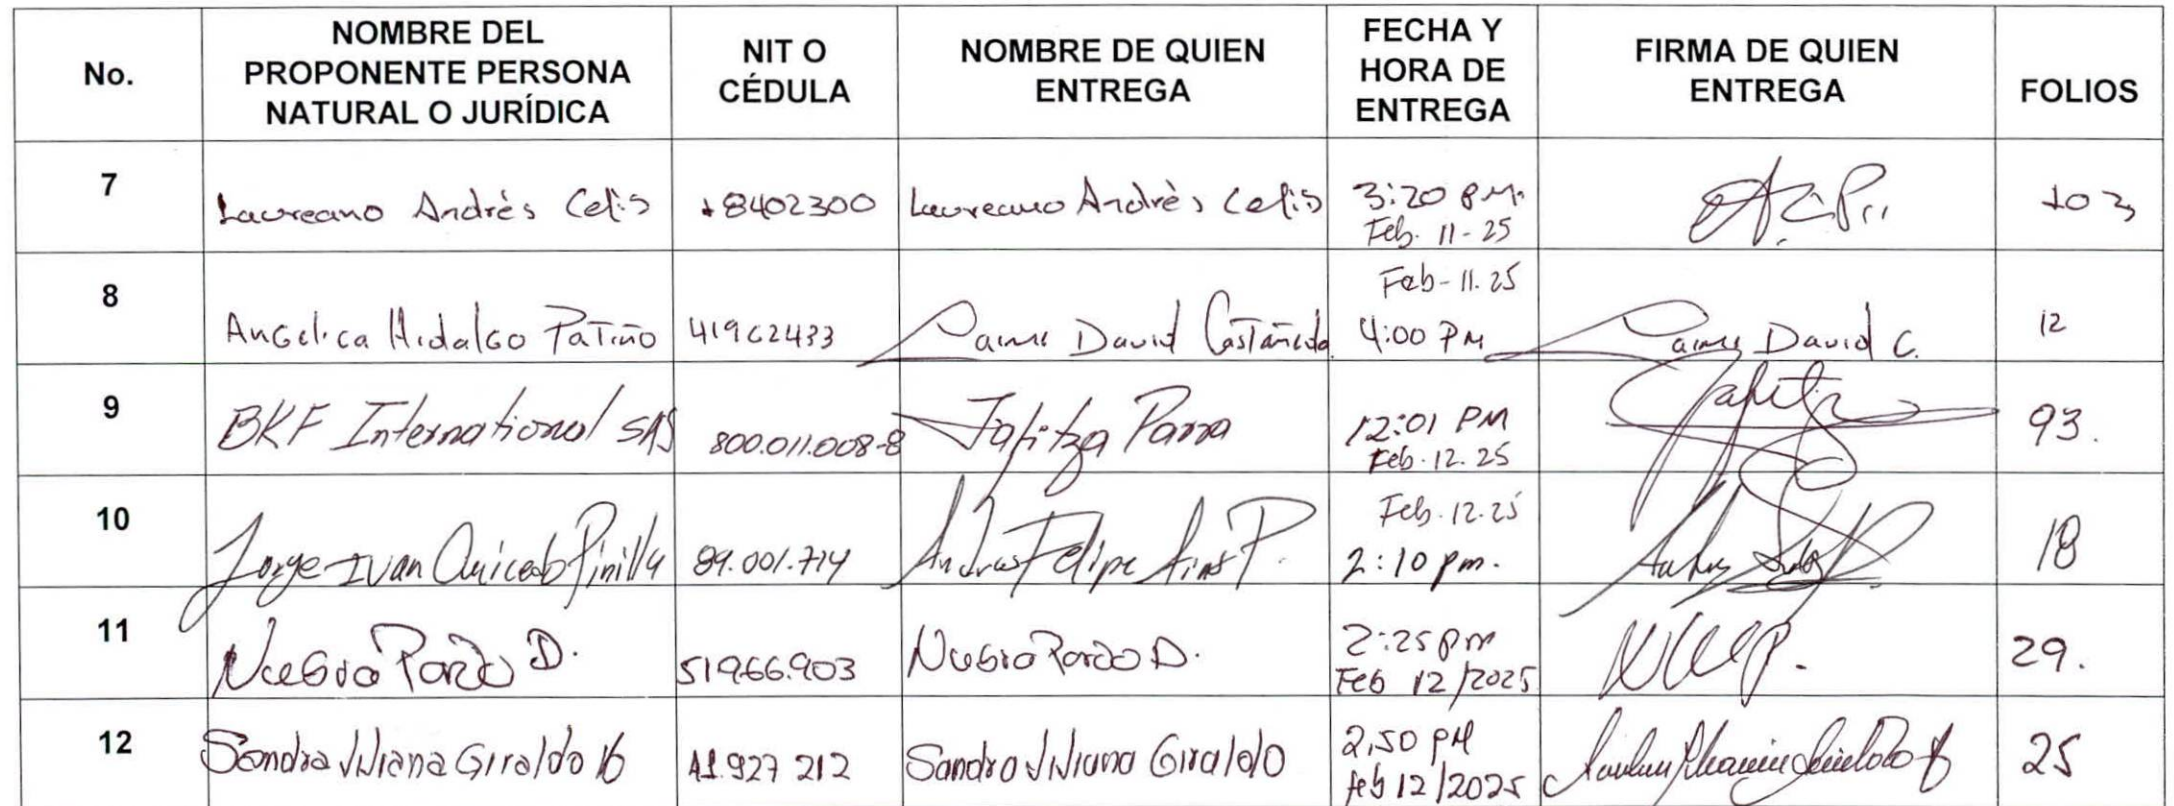 No.
NOMBRE DEL
PROPONENTE PERSONA
NATURAL O JURÍDICA
NIT O
CÉDULA
NOMBRE DE QUIEN
ENTREGA
FECHA Y
HORA DE
ENTREGA
FIRMA DE QUIEN
ENTREGA
FOLIOS
7
Laureano Andrès Celis
18402300
Laureano Andrès Celis
3:20 P.M.
Feb. 11-25
103
8
Angelica Hidalgo Patiño
41962433
Jaime David Castañeda
Feb-11.25
4:00 PM
Jaime David C.
12
9
BKF International SAS
800.011.008-8
Jafitza Parra
12:01 PM
Feb. 12. 25
93.
10
Jorge Ivan Quicedo Pinilla
89.001.714
Andres Felipe P.
Feb. 12.25
2:10 pm.
18
11
Nubia Pardo D.
51966.903
Nubia Pardo D.
2:25 pm
Feb 12/2025
29.
12
Sandra Viviana Giraldo
41.927 212
Sandra Viviana Giraldo
2,50 PM
feb 12/2025
25